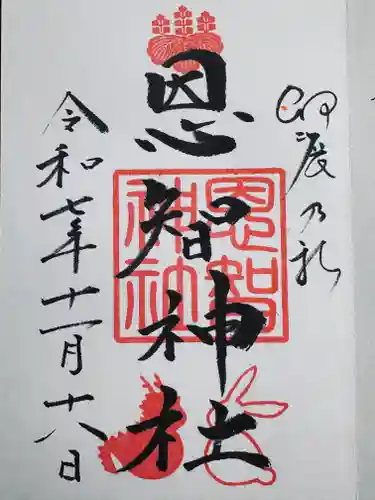 恩智神社
渡乃礼
恩智
神社
令和七年十一月十八日